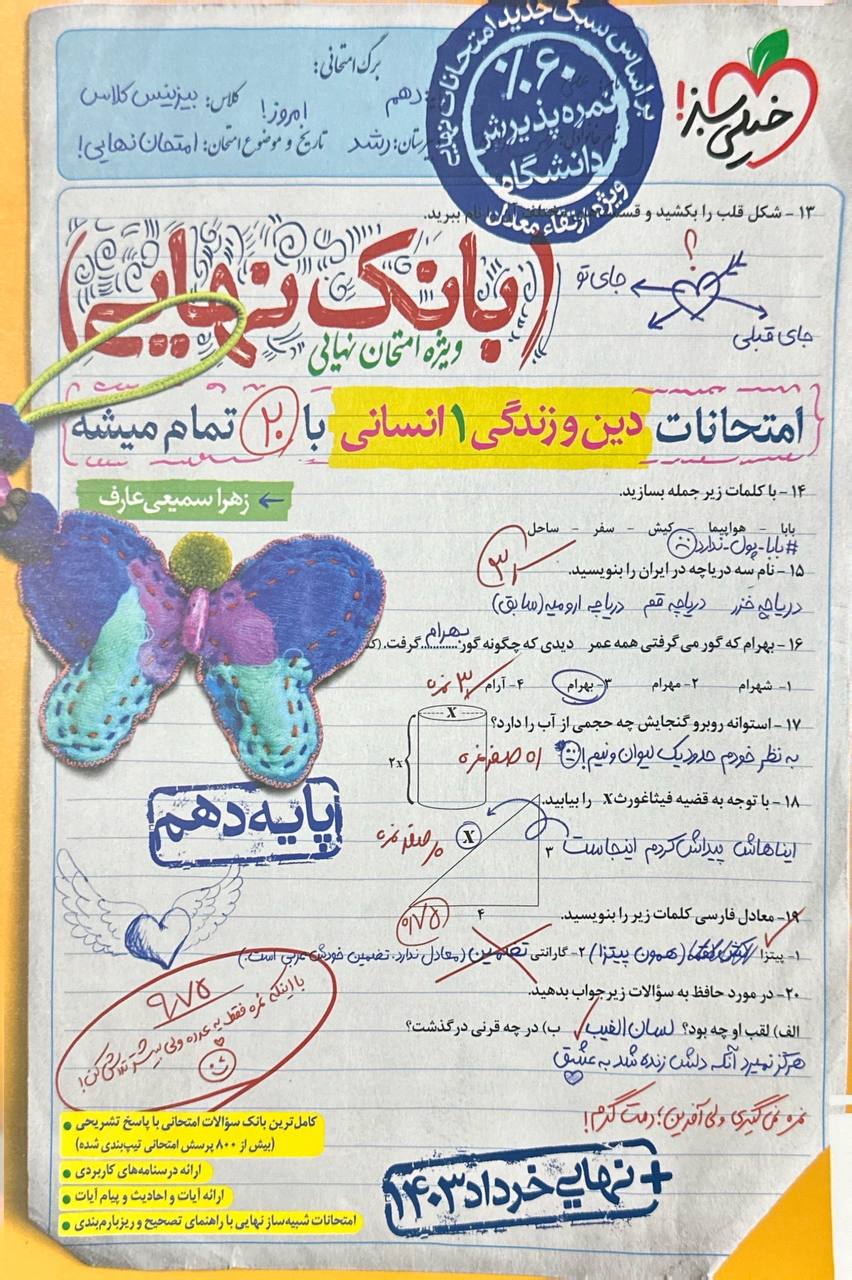 خیلی سبز!
بر اساس سبک جدید امتحانات نهایی
۶۰٪
نمره پذیرش
دانشگاه
ویژه ارتقاء معدل
برگ امتحانی:
دهم
امروز!
کلاس: بیزینس کلاس
رشد
تاریخ و موضوع امتحان: امتحان نهایی!
۱۳ - شکل قلب را بکشید و نام ببرید.
؟
جای تو
جای قبلی
(بانک نهایی)
ویژه امتحان نهایی
امتحانات دین و زندگی ۱ انسانی با ۲۰ تمام میشه
← زهرا سمیعی عارف
۱۴ - با کلمات زیر جمله بسازید.
بابا - هواپیما - کیش - سفر - ساحل
#بابا-پول-ندارد
۱۵ - نام سه دریاچه در ایران را بنویسید.
دریاچه خزر دریاچه قم دریاچه ارومیه (سابق)
۱۶ - بهرام که گور می‌گرفتی همه عمر دیدی که چگونه گور بهرام گرفت.
۱- شهرام ۲- مهرام ۳- بهرام ۴- آرام
۳ نمره
۱۷ - استوانه روبرو گنجایش چه حجمی از آب را دارد؟
x
۲x
به نظر خودم حدود یک لیوان و نیم!
صفر نمره
۱۸ - با توجه به قضیه فیثاغورث x را بیابید.
x
۳
۴
ایناهاش پیداش کردم اینجاست
صفر نمره
۰/۷۵
۱۹- معادل فارسی کلمات زیر را بنویسید.
۱- پیتزا (همون پیتزا) ۲- گارانتی تضمین (معادل ندارد. تضمین خودش عربی است.)
۲۰- در مورد حافظ به سؤالات زیر جواب بدهید.
الف) لقب او چه بود؟ لسان الغیب ب) در چه قرنی درگذشت؟
هرگز نمیرد آنکه دلش زنده شد به عشق
نمره نمی‌گیری ولی آفرین؛ دمت گرم!
پایه دهم
۹/۷۵
با اینکه نمره فقط یه عدده ولی بیشتر تلاش کن!
• کامل‌ترین بانک سؤالات امتحانی با پاسخ تشریحی
(بیش از ۸۰۰ پرسش امتحانی تیپ‌بندی شده)
• ارائه درسنامه‌های کاربردی
• ارائه آیات و احادیث و پیام آیات
• امتحانات شبیه‌ساز نهایی با راهنمای تصحیح و ریزبارم‌بندی
+ نهایی خرداد ۱۴۰۳